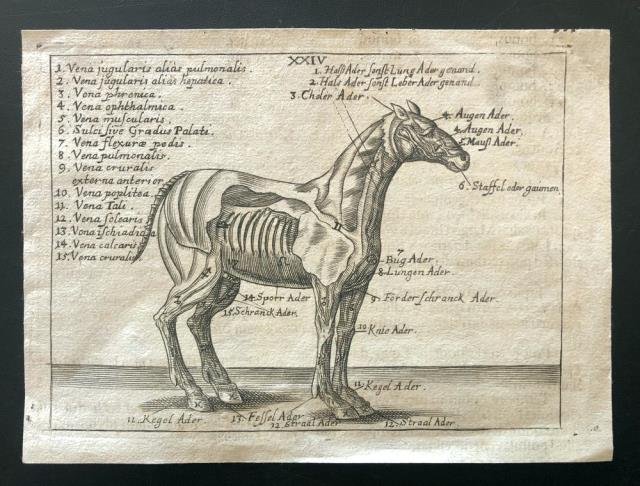 XXIV
1. Vena jugularis alias pulmonalis.
2. Vena jugularis alias hepatica.
3. Vena phrenica.
4. Vena ophthalmica.
5. Vena muscularis.
6. Sulci sive Gradus Palati.
7. Vena flexuræ pedis.
8. Vena pulmonalis.
9. Vena cruralis
externa anterior.
10. Vena poplitea.
11. Vena Tali.
12. Vena solearis
13. Vena ischiadica
14. Vena calcaris
15. Vena cruralis
1. Halß Ader sonst Lung Ader genand.
2. Halß Ader sonst Leber Ader genand
3. Choler Ader.
4. Augen Ader.
4. Augen Ader.
5. Mauß Ader.
6. Staffel oder gaumen
7
Bug Ader.
8. Lungen Ader.
9. Förder schranck Ader.
14. Sporr Ader
15. Schranck Ader.
10. Knie Ader.
11. Kegel Ader.
11. Kegel Ader
13. Fessel Ader
12. Straal Ader
12. Straal Ader